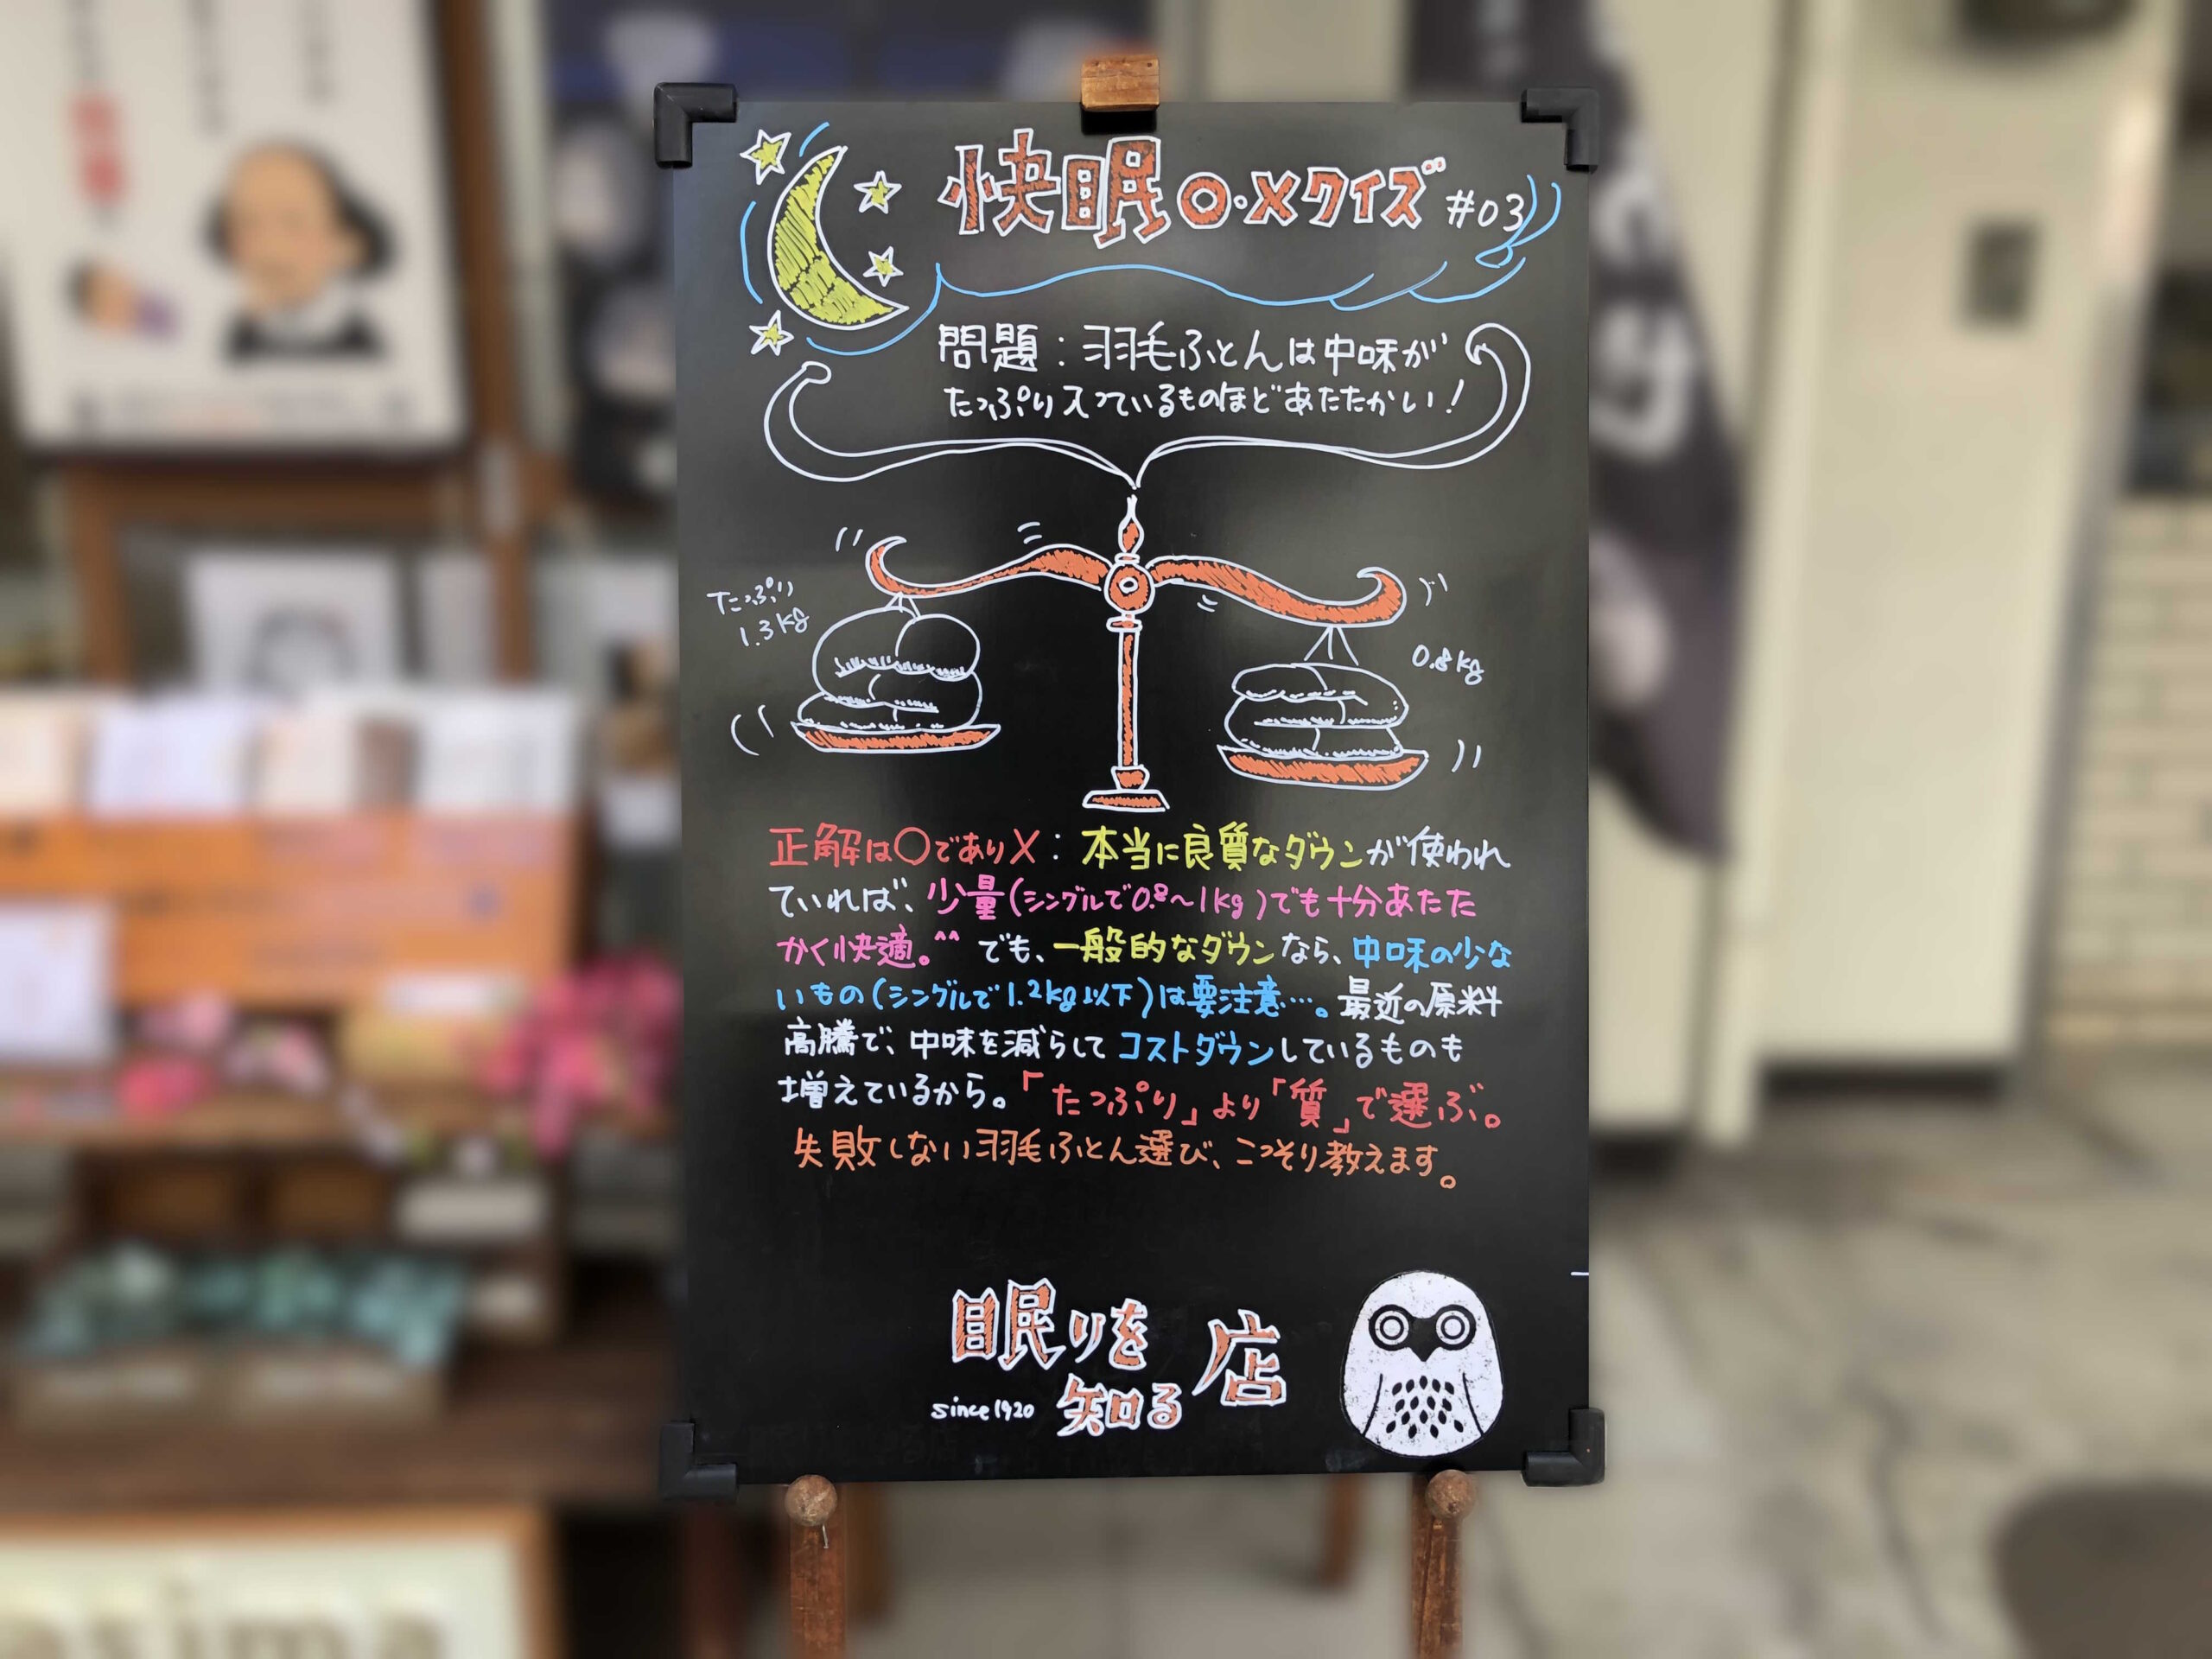 快眠○・×クイズ #03
問題：羽毛ふとんは中味が
たっぷり入っているものほどあたたかい！
たっぷり
1.3kg
0.8kg
正解は○であり×：本当に良質なダウンが使われ
ていれば、少量(シングルで0.8〜1kg)でも十分あたた
かく快適。^^ でも、一般的なダウンなら、中味の少な
いもの(シングルで1.2kg以下)は要注意…。最近の原料
高騰で、中味を減らしてコストダウンしているものも
増えているから。「たっぷり」より「質」で選ぶ。
失敗しない羽毛ふとん選び、こっそり教えます。
眠りを
知る店
since 1920